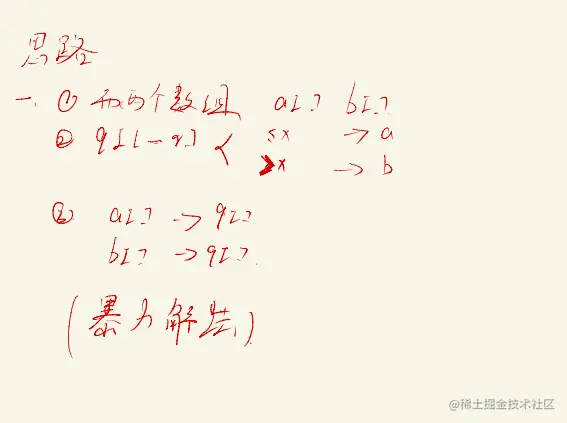 思路
一、① 两个数组 a[] b[]
② q[l-r] < ≤x → a
>x → b
③ a[] → q[]
b[] → q[].
(暴力解法)
@稀土掘金技术社区